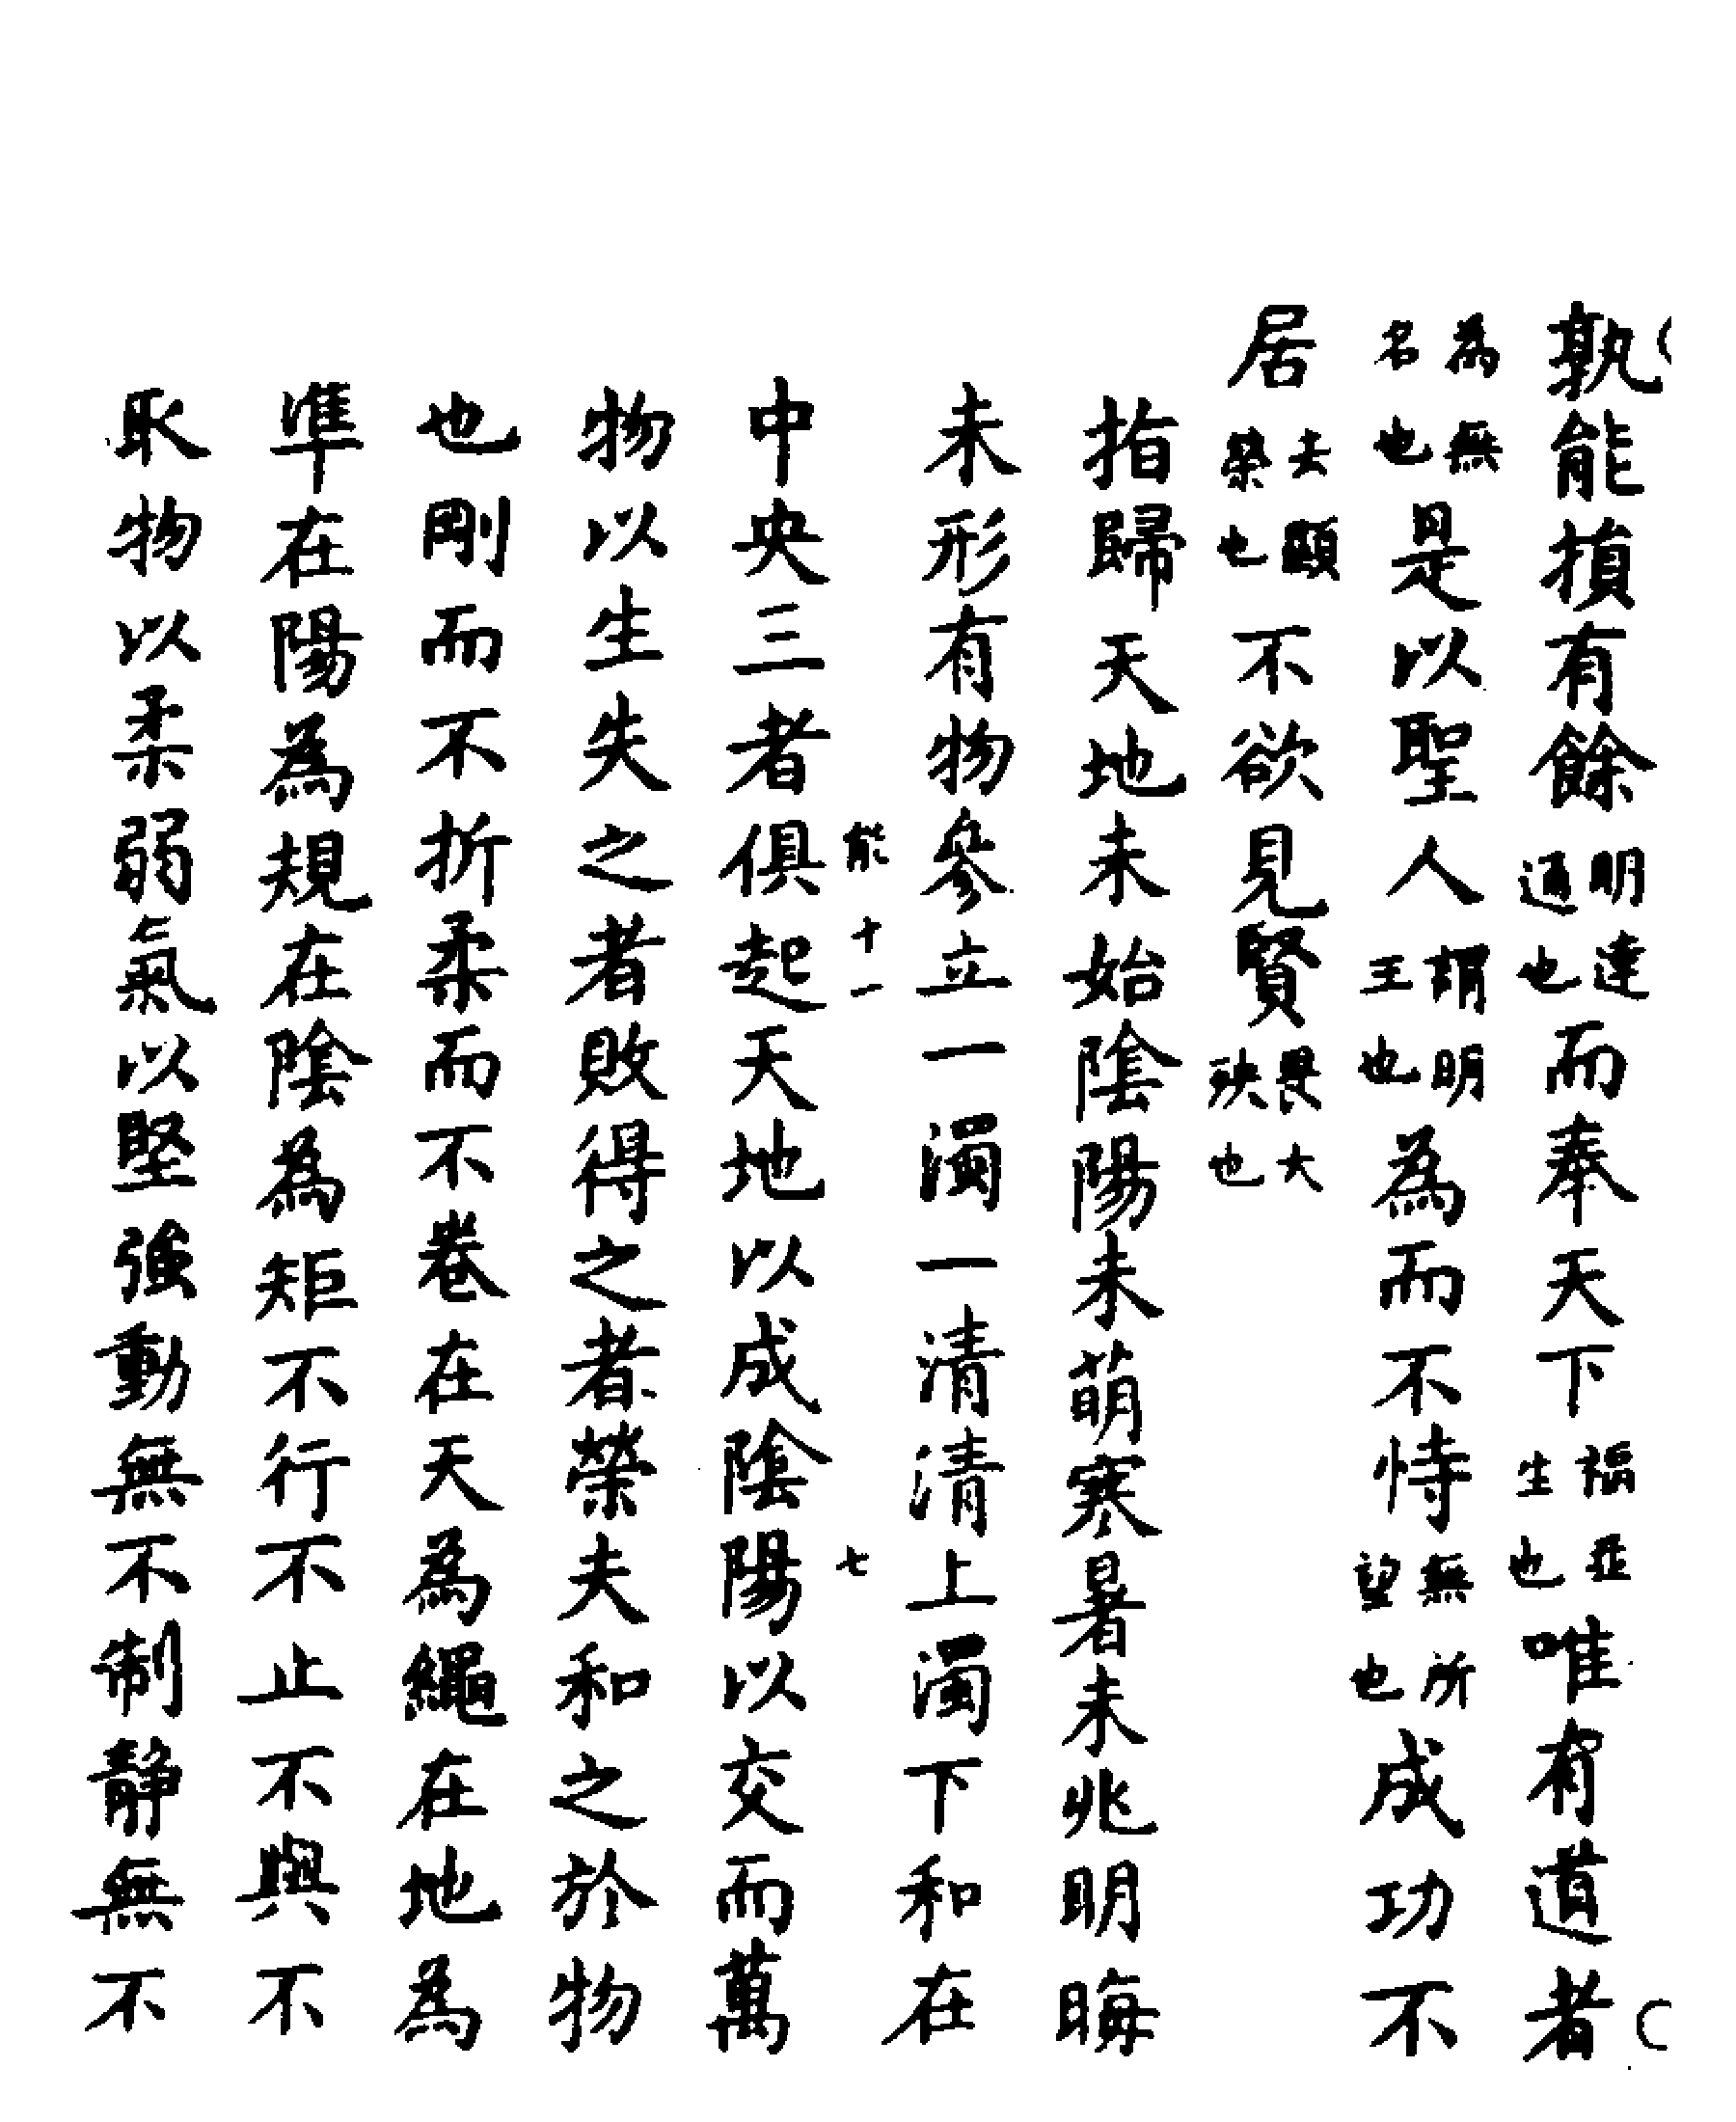 孰能損有餘明達通也而奉天下福並生也唯有道者
為無名也是以聖人謂明王也為而不恃無所望也成功不
居去顯榮也不欲見賢畏大殃也
指歸天地未始陰陽未萌寒暑未兆明晦
未形有物參立一濁一清清上濁下和在
能十一 七
中央三者俱起天地以成陰陽以交而萬
物以生失之者敗得之者榮夫和之於物
也剛而不折柔而不卷在天為繩在地為
準在陽為規在陰為矩不行不止不與不
取物以柔弱氣以堅強動無不制靜無不